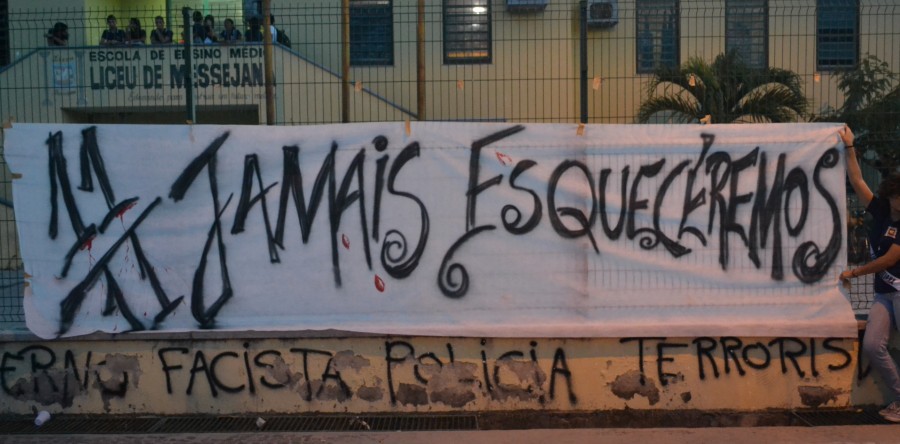 ESCOLA DE ENSINO MÉDIO
LICEU DE MESSEJANA
JAMAIS ESQUECEREMOS
ERNO FACISTA POLICIA TERRORIS